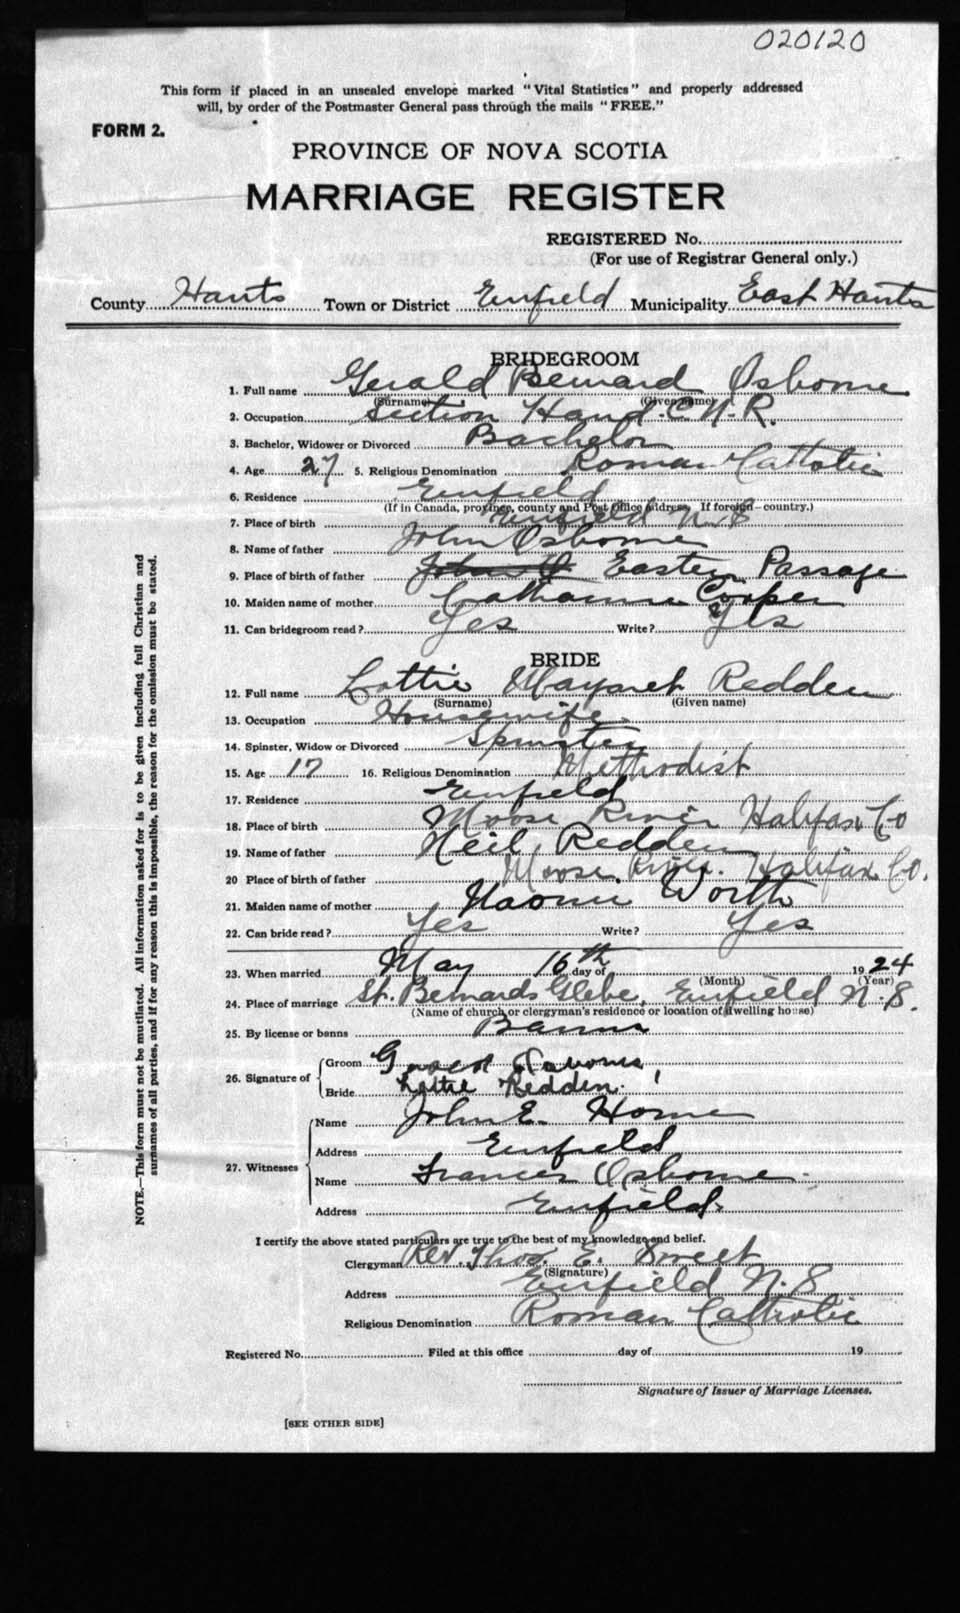 020120
This form if placed in an unsealed envelope marked "Vital Statistics" and properly addressed
will, by order of the Postmaster General pass through the mails "FREE."
FORM 2.
PROVINCE OF NOVA SCOTIA
MARRIAGE REGISTER
REGISTERED No.
(For use of Registrar General only.)
County Hants Town or District Enfield Municipality East Hants
BRIDEGROOM
1. Full name Gerald Bernard Osborne
(Surname) (Given name)
2. Occupation Section Hand C.N.R.
3. Bachelor, Widower or Divorced Bachelor
4. Age 27 5. Religious Denomination Roman Catholic
6. Residence Enfield
(If in Canada, province, county and Post Office address. If foreign—country.)
7. Place of birth Enfield N.S
8. Name of father John Osborne
9. Place of birth of father John O Eastern Passage
10. Maiden name of mother Catharine Cooper
11. Can bridegroom read? Yes Write? Yes
BRIDE
12. Full name Lottie Margaret Redden
(Surname) (Given name)
13. Occupation Housewife
14. Spinster, Widow or Divorced Spinster
15. Age 17 16. Religious Denomination Methodist
17. Residence Enfield
18. Place of birth Moose River Halifax Co
19. Name of father Neil Redden
20 Place of birth of father Moose River. Halifax Co.
21. Maiden name of mother Naomi Worth
22. Can bride read? Yes Write? Yes
23. When married May 16th day of 1924
(Month) (Year)
24. Place of marriage St. Bernards Glebe, Enfield N.S.
(Name of church or clergyman's residence or location of dwelling house)
25. By license or banns Banns
26. Signature of Groom Osborne
Bride Lottie Redden.
27. Witnesses Name John E. Horne
Address Enfield
Name Frances Osborne
Address Enfield.
I certify the above stated particulars are true to the best of my knowledge and belief.
Clergyman Rev. Thos. E. Sweet
(Signature)
Address Enfield N.S
Religious Denomination Roman Catholic
Registered No. Filed at this office day of 19
Signature of Issuer of Marriage Licenses.
[SEE OTHER SIDE]
NOTE.—This form must not be mutilated. All information asked for is to be given including full Christian and
surnames of all parties, and if for any reason this is impossible, the reason for the omission must be stated.